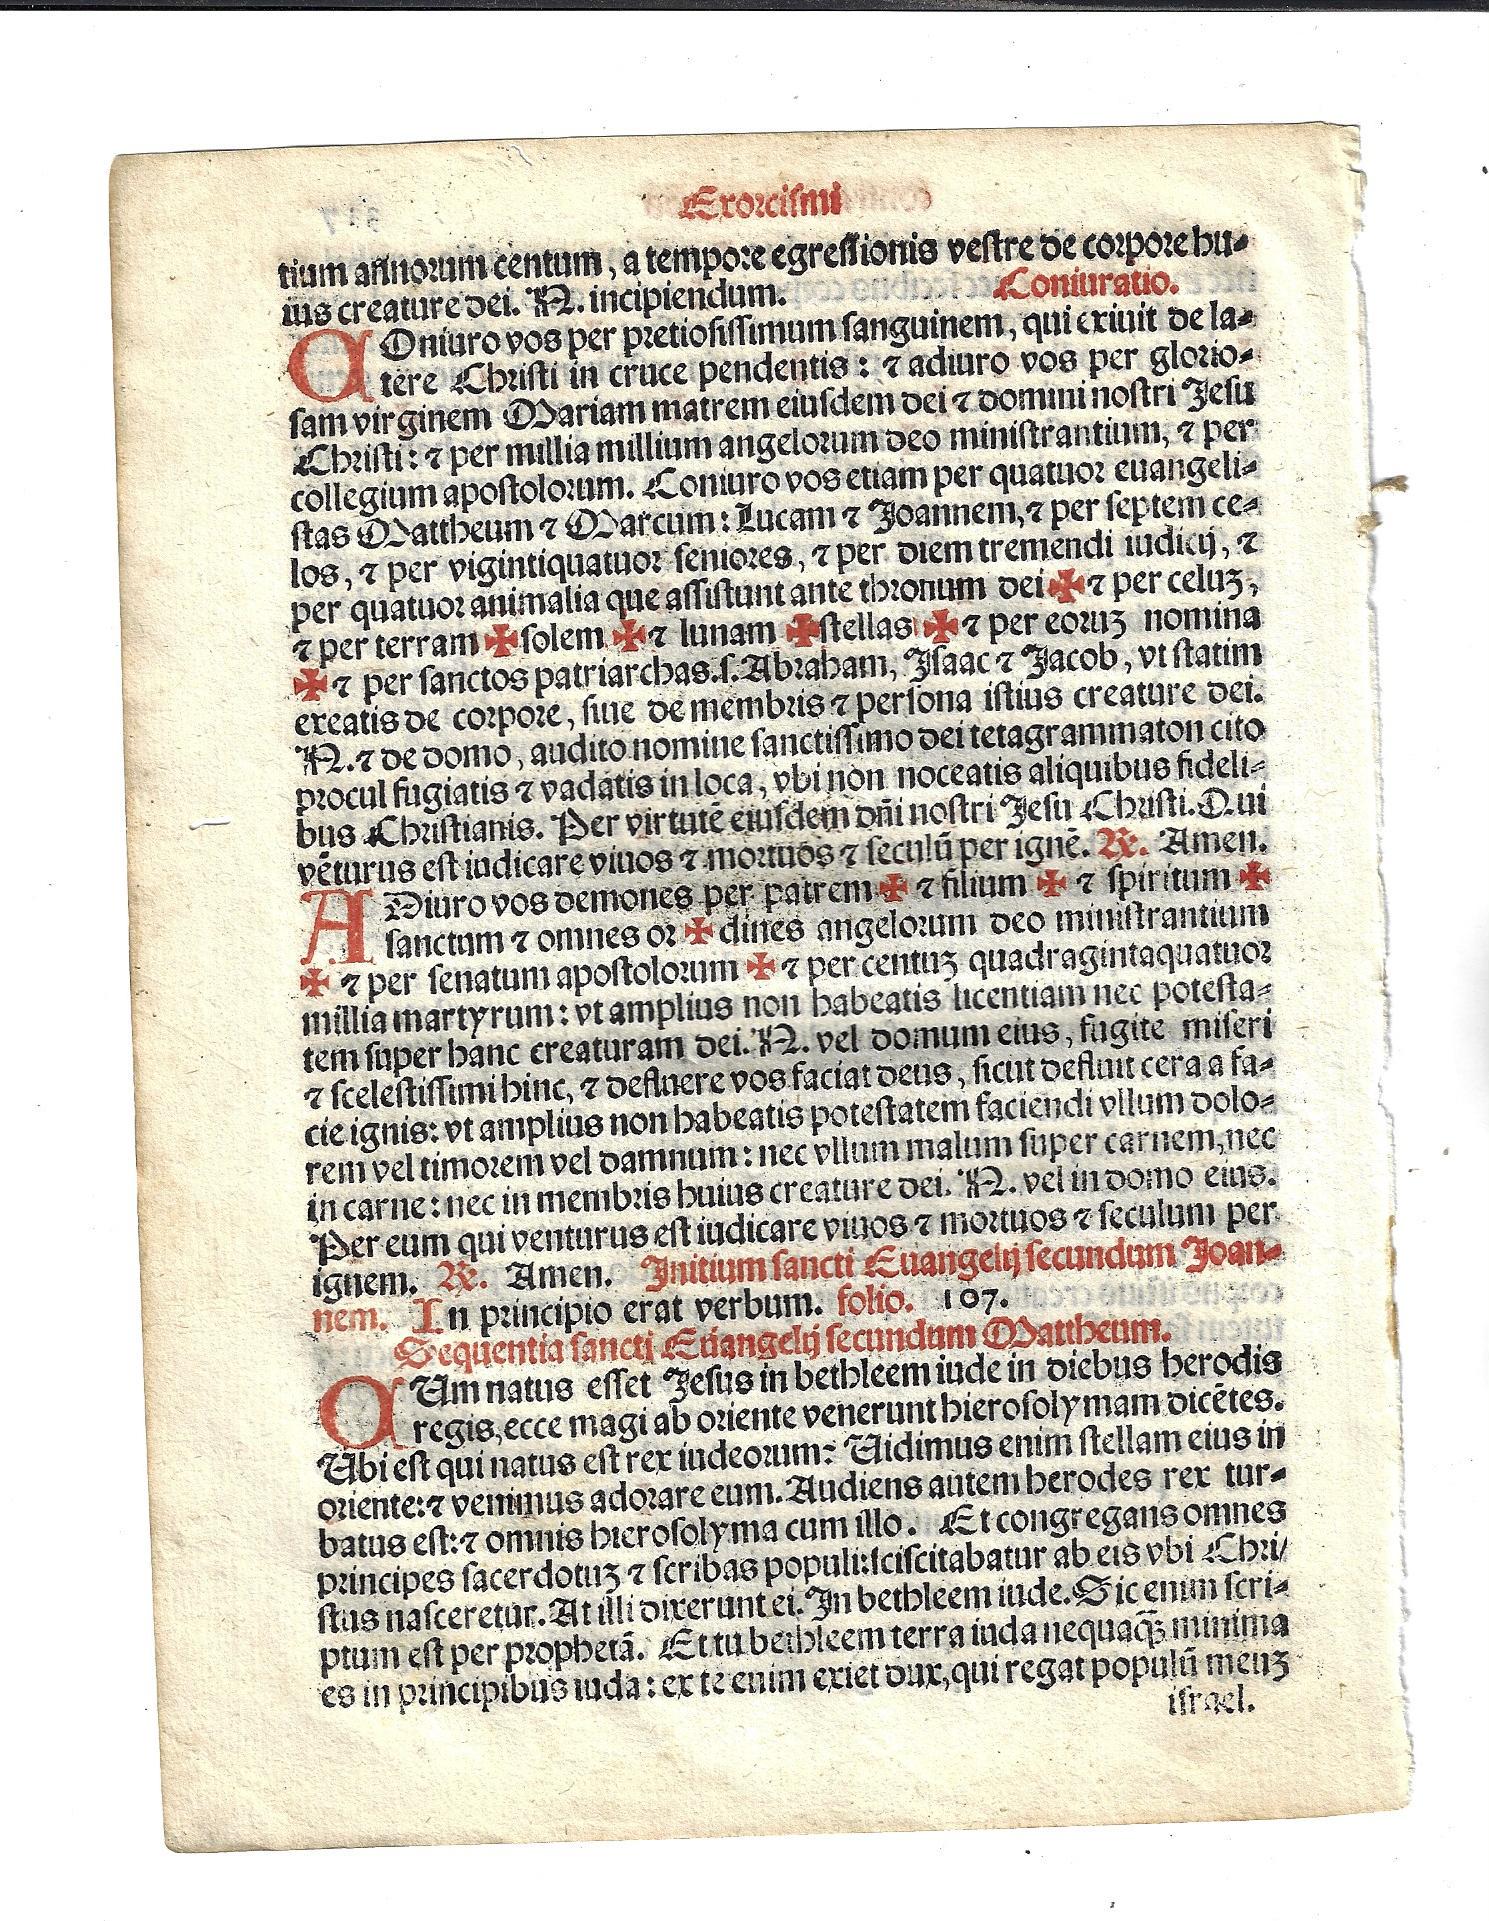 Exorcismi
tium annorum centum, a tempore egressionis vestre de corpore hu⸗
ius creature dei. N. incipiendum. Coniuratio.
COniuro vos per pretiosissimum sanguinem, qui exiuit de la⸗
tere Christi in cruce pendentis: ⁊ adiuro vos per glorio⸗
sam virginem Mariam matrem eiusdem dei ⁊ domini nostri Jesu
Christi: ⁊ per millia millium angelorum deo ministrantium, ⁊ per
collegium apostolorum. Coniuro vos etiam per quatuor euangeli⸗
stas Mattheum ⁊ Marcum: Lucam ⁊ Joannem, ⁊ per septem ce⸗
los, ⁊ per vigintiquatuor seniores, ⁊ per diem tremendi iudicij, ⁊
per quatuor animalia que assistunt ante thronum dei ✠ ⁊ per celuꝫ,
⁊ per terram ✠ solem ✠ ⁊ lunam ✠ stellas ✠ ⁊ per eoruꝫ nomina
✠ ⁊ per sanctos patriarchas.s. Abraham, Isaac ⁊ Jacob, vt statim
exeatis de corpore, siue de membris ⁊ persona istius creature dei.
N. ⁊ de domo, audito nomine sanctissimo dei tetagrammaton cito
procul fugiatis ⁊ vadatis in loca, vbi non noceatis aliquibus fideli⸗
bus Christianis. Per virtutē eiusdem dñi nostri Jesu Christi. Qui
vēturus est iudicare viuos ⁊ mortuos ⁊ seculū per ignē. ℞. Amen.
ADiuro vos demones per patrem ✠ ⁊ filium ✠ ⁊ spiritum ✠
sanctum ⁊ omnes or ✠ dines angelorum deo ministrantium
✠ ⁊ per senatum apostolorum ✠ ⁊ per centuꝫ quadragintaquatuor
millia martyrum: vt amplius non habeatis licentiam nec potesta⸗
tem super hanc creaturam dei. N. vel domum eius, fugite miseri
⁊ scelestissimi hinc, ⁊ defluere vos faciat deus, sicut defluit cera a fa⸗
cie ignis: vt amplius non habeatis potestatem faciendi vllum dolo⸗
rem vel timorem vel damnum: nec vllum malum super carnem, nec
in carne: nec in membris huius creature dei. N. vel in domo eius.
Per eum qui venturus est iudicare viuos ⁊ mortuos ⁊ seculum per
ignem. ℞. Amen. Initium sancti Euangelij secundum Joan⸗
nem. In principio erat verbum. folio. 107.
Sequentia sancti Euangelij secundum Mattheum.
CUm natus esset Jesus in bethleem iude in diebus herodis
regis, ecce magi ab oriente venerunt hierosolymam dicētes.
Ubi est qui natus est rex iudeorum? Uidimus enim stellam eius in
oriente: ⁊ venimus adorare eum. Audiens autem herodes rex tur⸗
batus est: ⁊ omnis hierosolyma cum illo. Et congregans omnes
principes sacerdotuꝫ ⁊ scribas populi: sciscitabatur ab eis vbi Chri/
stus nasceretur. At illi dixerunt ei. In bethleem iude. Sic enim scri⸗
ptum est per prophetā. Et tu bethleem terra iuda nequaq̄ꝫ minima
es in principibus iuda: ex te enim exiet dux, qui regat populū meuꝫ
israel.